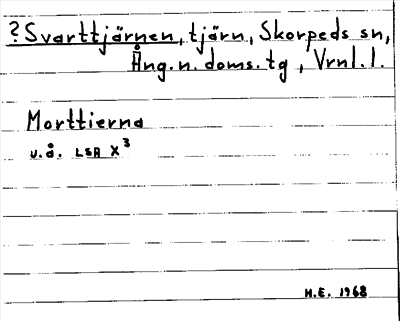 ?Svarttjärnen, tjärn, Skorpeds sn,
Ång.n.doms.tg, Vrnl.l.
Morttierna
u.å. LSA X³
H.E. 1968